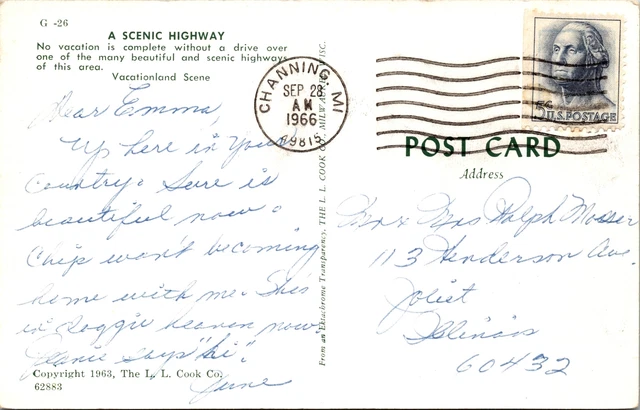 G -26
A SCENIC HIGHWAY
No vacation is complete without a drive over
one of the many beautiful and scenic highways
of this area.
Vacationland Scene
Dear Emma,
Up here in your
Country. Sure is
beautiful now.
Chip won't becoming
home with me. She's
in doggie heaven now.
says "hi".
June
Copyright 1963, The L. L. Cook Co.
62883
From an Ektachrome Transparency, THE L. L. COOK CO., MILWAUKEE, WISC.
CHANNING, MI
SEP 28
AM
1966
49815
5¢
U.S. POSTAGE
POST CARD
Address
Mr & Mrs Ralph Mosser
113 Henderson Ave.
Joliet
Illinois
60432